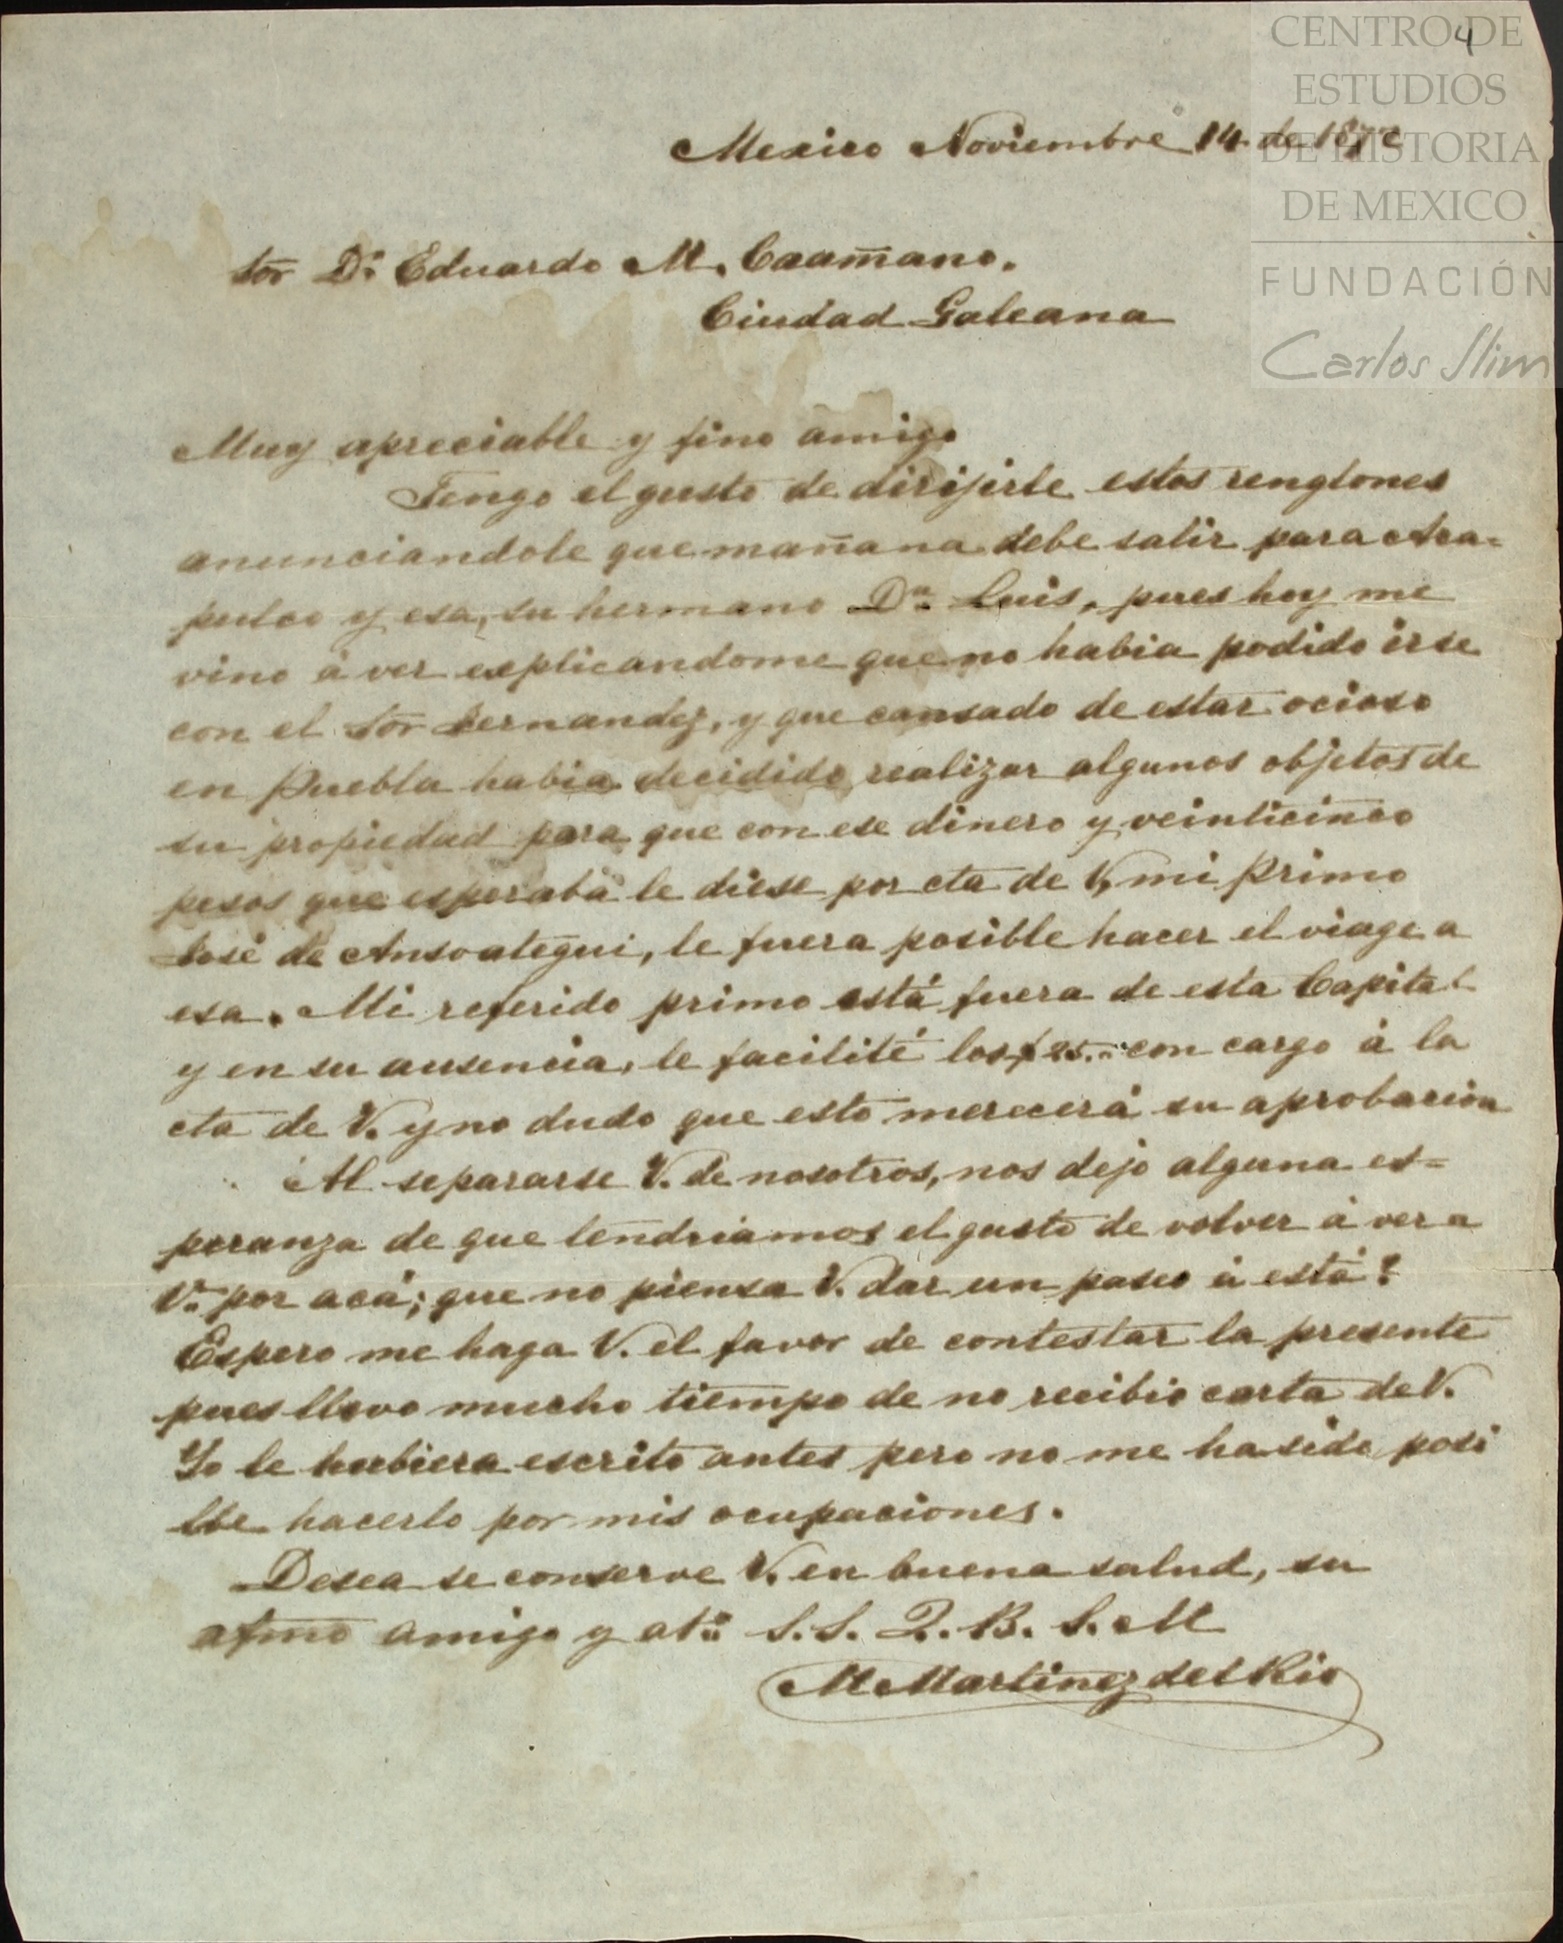 4
CENTRO DE
ESTUDIOS
DE HISTORIA
DE MEXICO
FUNDACIÓN
Carlos Slim
Mexico Noviembre 14 de
Sor Dn Eduardo M. Caamano.
Ciudad Galeana
Muy apreciable y fino amigo
Tengo el gusto de dirijirle estos renglones
anunciandole que mañana debe salir para Aca=
pulco y esa, su hermano Dn. Luis, pues hoy me
vino á ver esplicandome que no habia podido irse
con el Sor Fernandez, y que cansado de estar ocioso
en Puebla habia decidido realizar algunos objetos de
su propiedad para que con ese dinero y veinticinco
pesos que esperaba le diese por cta de V, mi primo
José de Ansoategui, le fuera posible hacer el viage a
esa. Mi referido primo está fuera de esta Capital
y en su ausencia, le facilité los $25.- con cargo á la
cta de V. y no dudo que esto merecerá su aprobacion
Al separarse V. de nosotros, nos dejo alguna es=
peranza de que tendriamos el gusto de volver á ver a
V. por acá; que no piensa V. dar un paseo á está?
Espero me haga V. el favor de contestar la presente
pues llevo mucho tiempo de no recibio carta de V.
Yo le hubiera escrito antes pero no me ha sido posi
ble hacerlo por mis ocupaciones.
Desea se conserve V. en buena salud, su
afmo amigo y ato S. S. Q. B. S. M
M Martinez del Rio